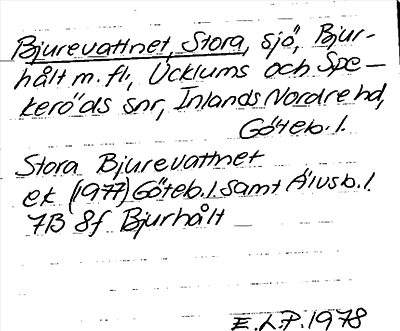 Bjurevattnet, Stora, sjö, Bjur-
hålt m. fl., Ucklums och Spe-
keröds snr, Inlands Nordre hd,
Göteb. l.
Stora Bjurevattnet
ek (1977) Göteb. l. samt Älvsb. l.
7B 8f Bjurhålt
E.L.P. 1978